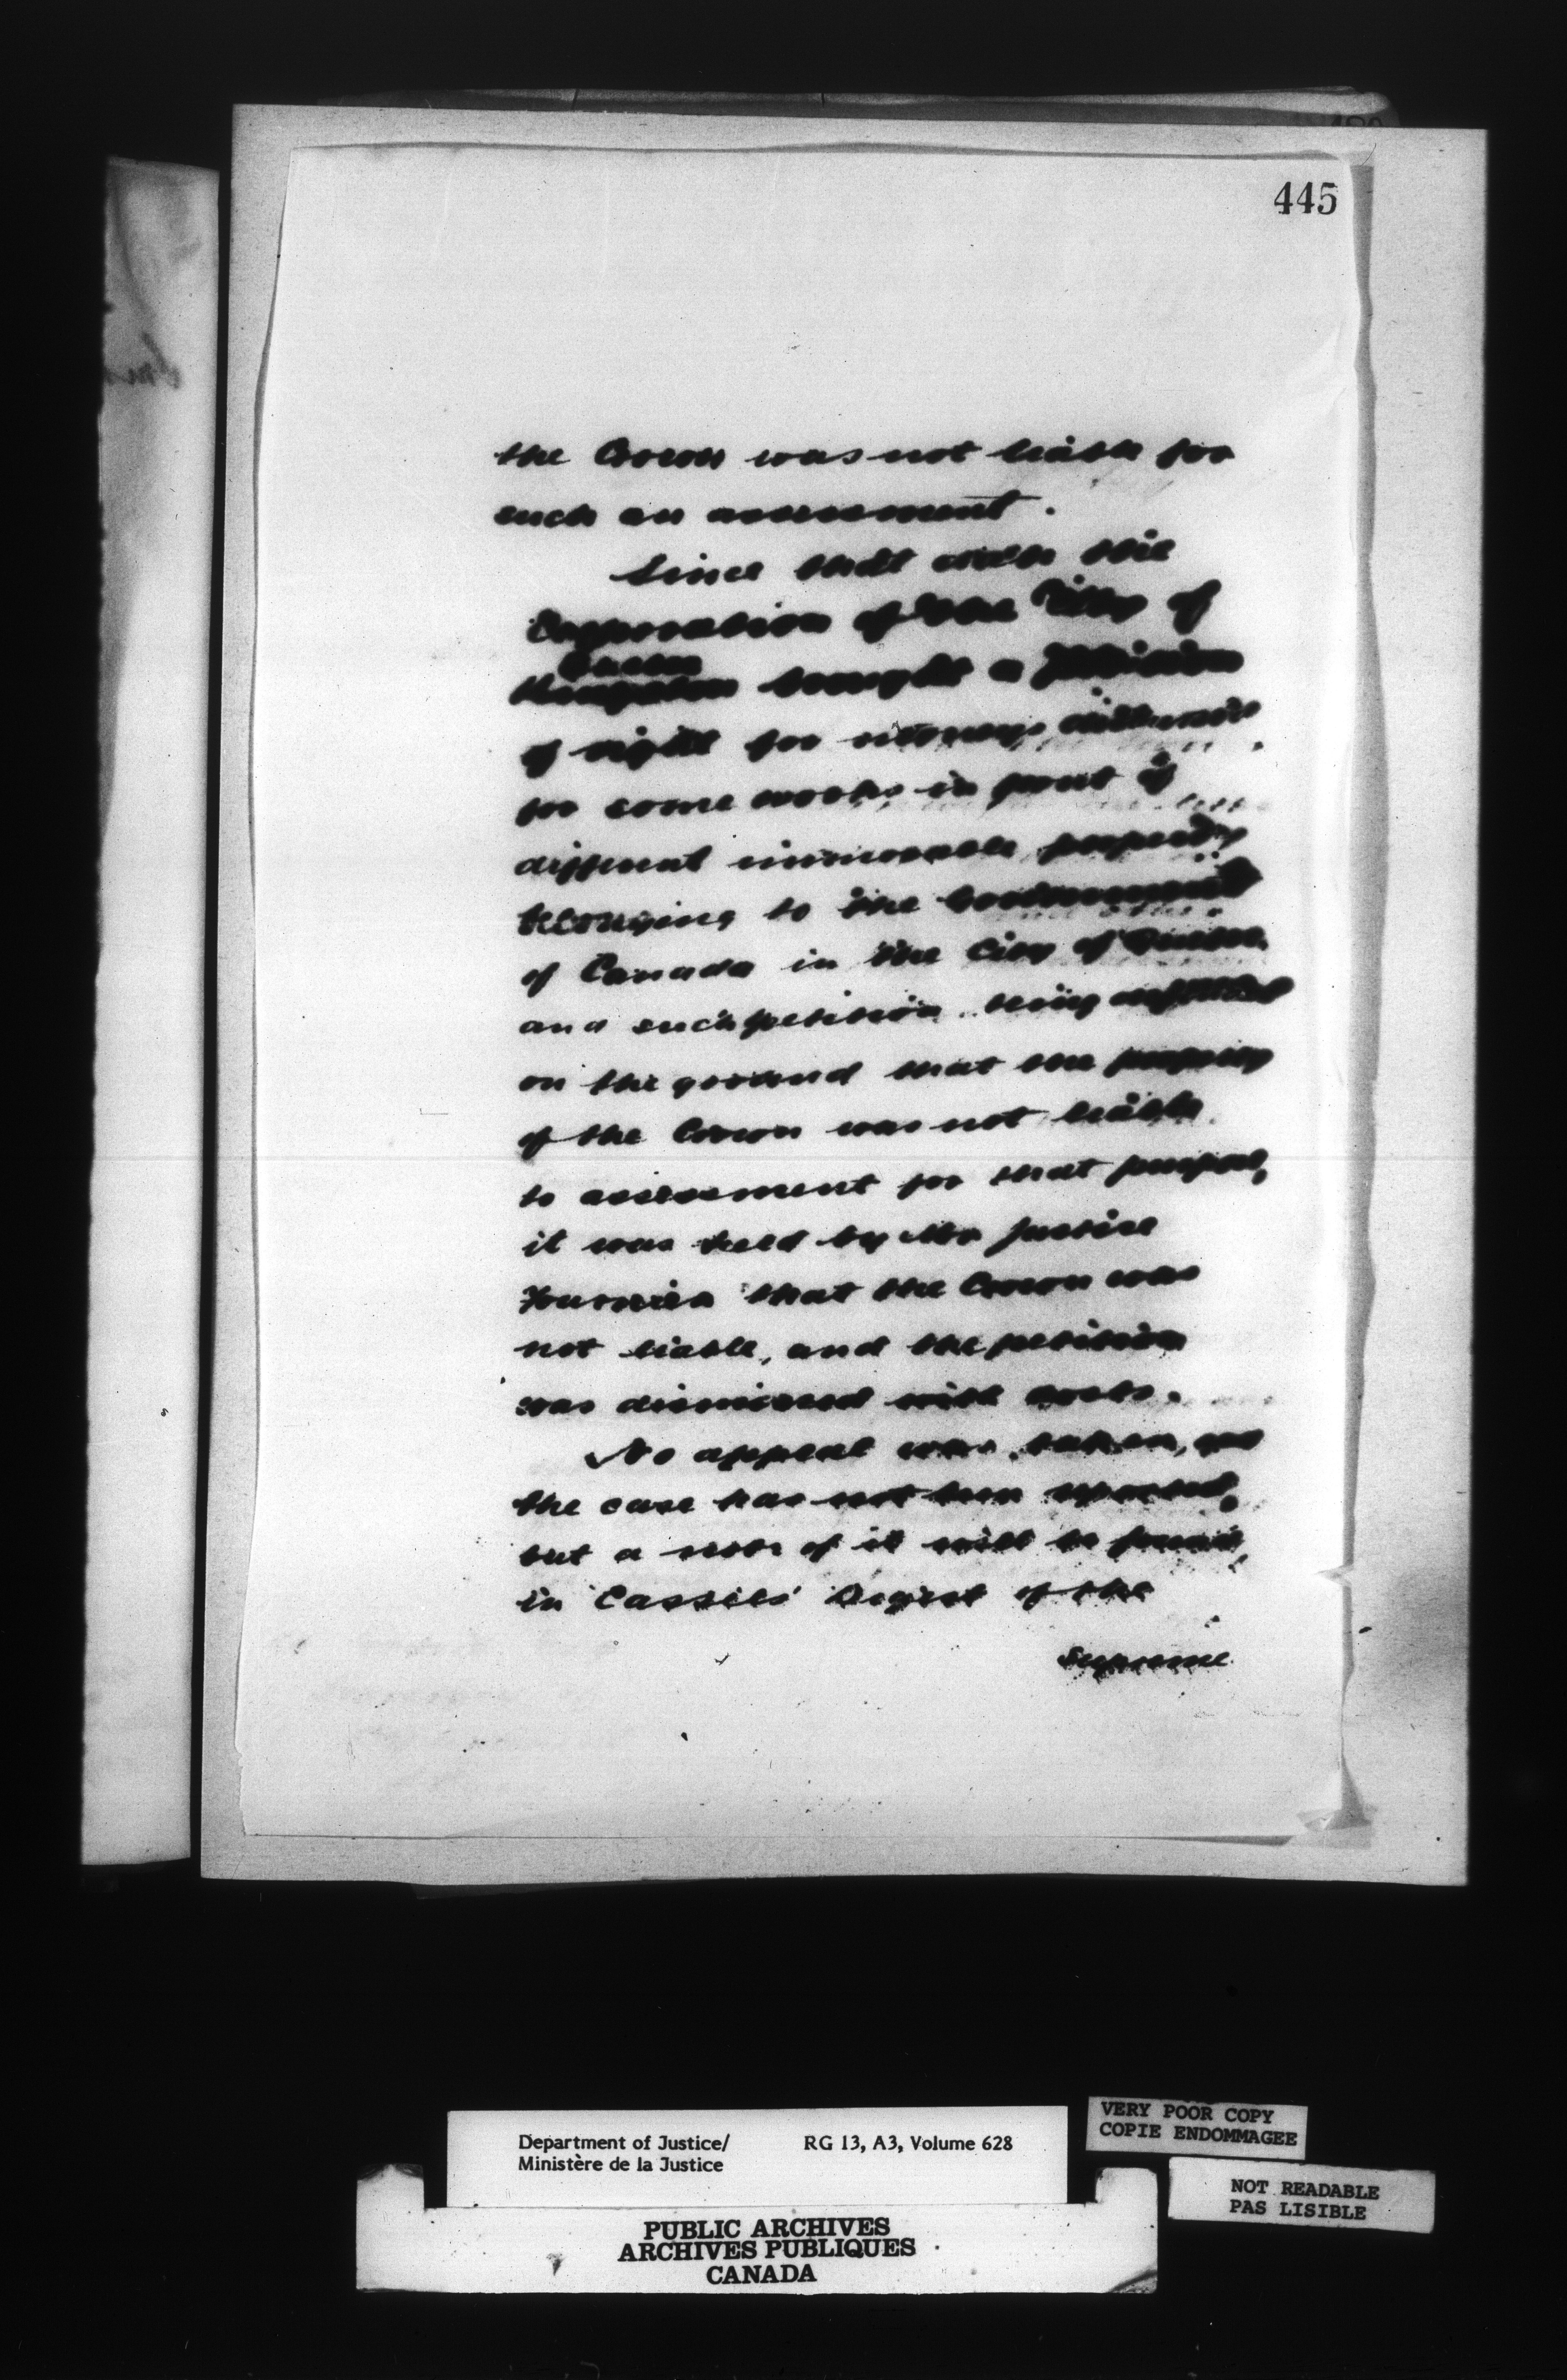 445
the Crown was not liable for
such an assessment.
Since that date the
Corporation of the City of
Quebec
Kingston brought a petition
of right for moneys
for some works in front of
different immovable property
belonging to the Government
of Canada in the City of Quebec,
and such petition being defended
on the ground that the property
of the Crown was not liable
to assessment for that purpose,
it was held by Mr Justice
Fournier that the Crown was
not liable, and the petition
was dismissed with costs.
No appeal was taken, and
the case has not been reported,
but a note of it will be found
in Cassels' Digest of the
Supreme
Department of Justice/
Ministère de la Justice
RG 13, A3, Volume 628
VERY POOR COPY
COPIE ENDOMMAGEE
NOT READABLE
PAS LISIBLE
PUBLIC ARCHIVES
ARCHIVES PUBLIQUES
CANADA